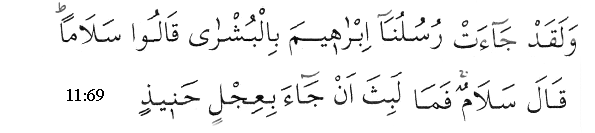 وَلَقَدْ جَآءَتْ رُسُلُنَآ اِبْرٰهِيْمَ بِالْبُشْرٰى قَالُوْا سَلَامًا ؕ
قَالَ سَلَامٌ ۚ فَمَا لَبِثَ اَنْ جَآءَ بِعِجْلٍ حَنِيْذٍ 11:69